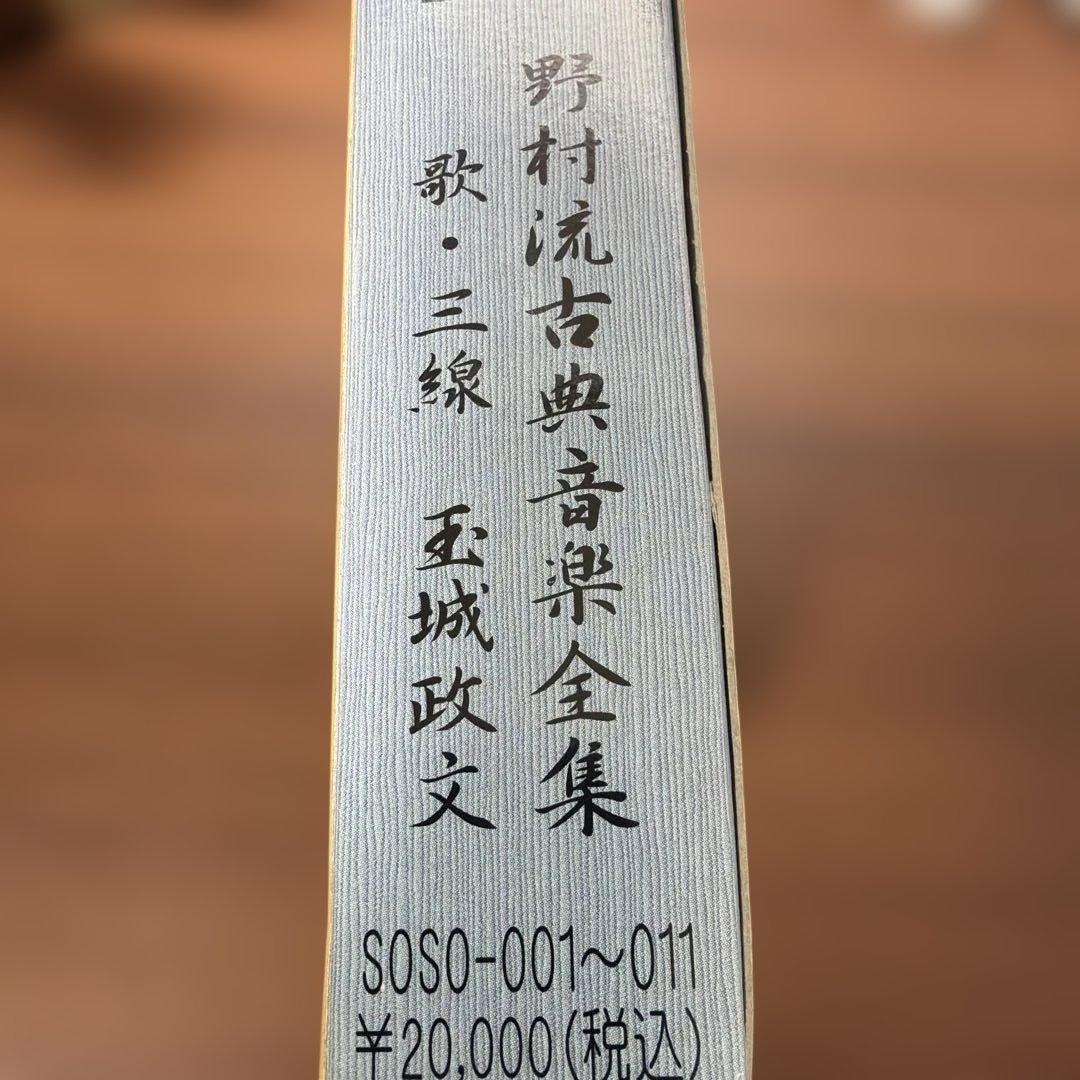 野村流古典音楽全集
歌・三線 玉城政文
SOSO-001～011
¥20,000(税込)